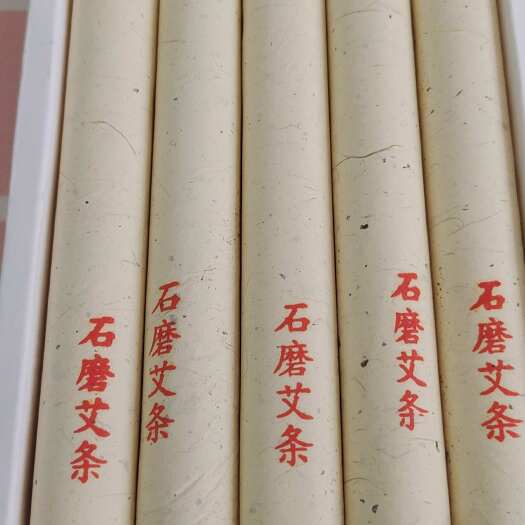 石磨艾条
石磨艾条
石磨艾条
石磨艾条
石磨艾条